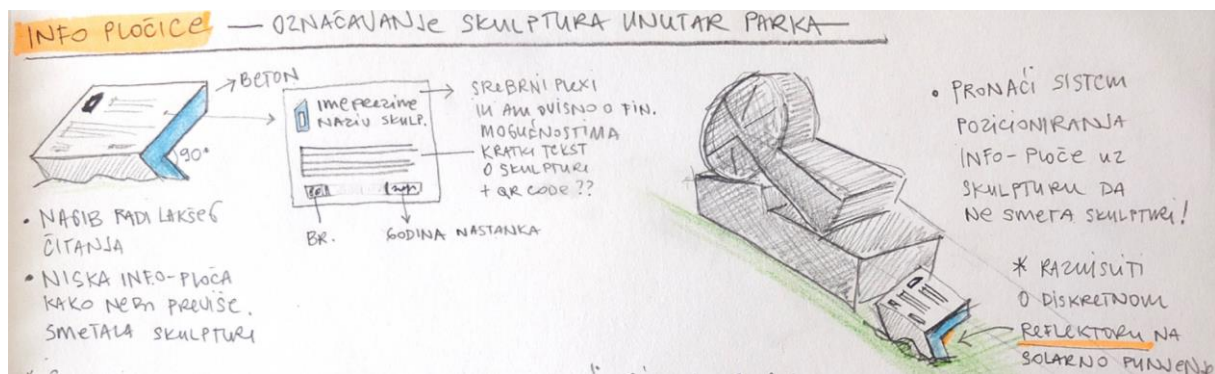 INFO PLOČICE — OZNAČAVANJE SKULPTURA UNUTAR PARKA
BETON
90°
• NAGIB RADI LAKŠEG
ČITANJA
• NISKA INFO-PLOČA
KAKO NEBI PREVIŠE
SMETALA SKULPTURI
IME PREZIME
NAZIV SKULP.
BR.
GODINA NASTANKA
SREBRNI PLEXI
ILI ALU OVISNO O FIN.
MOGUĆNOSTIMA
KRATKI TEKST
O SKULPTURI
+ QR CODE ??
• PRONAĆI SISTEM
POZICIONIRANJA
INFO-PLOČE UZ
SKULPTURU DA
NE SMETA SKULPTURI!
* RAZMISLITI
O DISKRETNOM
REFLEKTORU NA
SOLARNO PUNJENJE